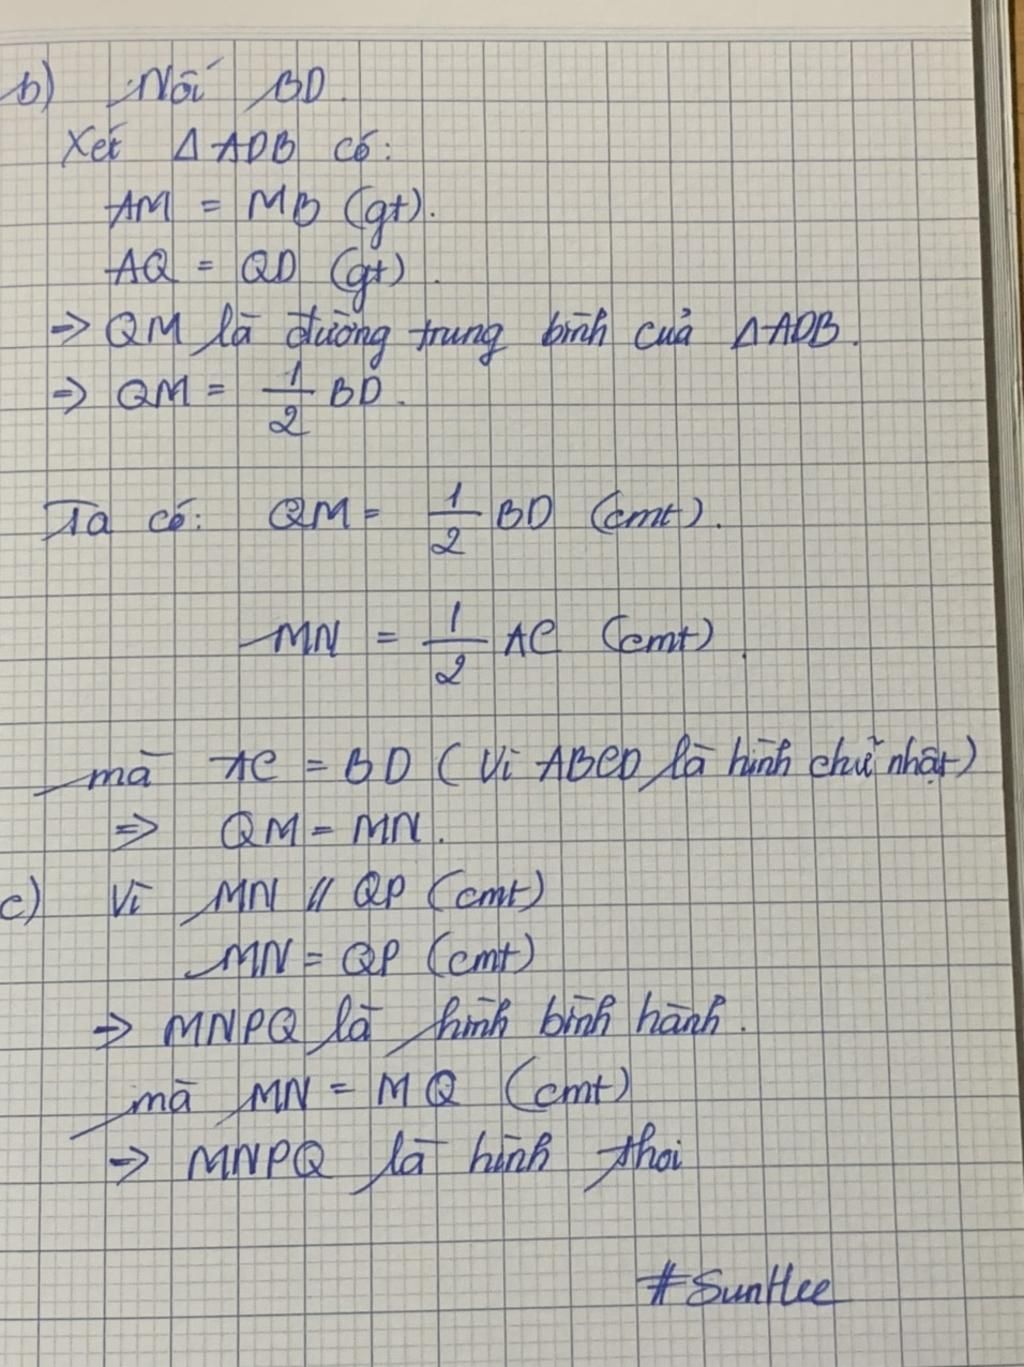 b) Nối BD.
Xét Δ ADB có:
AM = MB (gt).
AQ = QD (gt).
=> QM là đường trung bình của Δ ADB.
=> QM = 1/2 BD.
Ta có: QM = 1/2 BD (cmt).
MN = 1/2 AC (cmt).
mà AC = BD (Vì ABCD là hình chữ nhật)
=> QM = MN.
c) Vì MN // QP (cmt)
MN = QP (cmt)
=> MNPQ là hình bình hành.
mà MN = MQ (cmt)
=> MNPQ là hình thoi
#SunHee